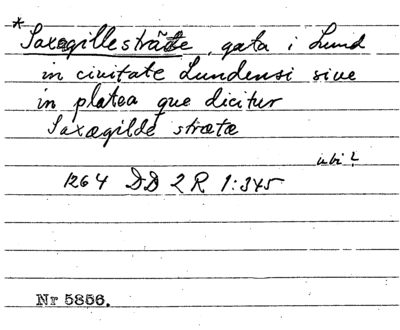 *Saxegillestræte, gata i Lund
in civitate Lundensi sive
in platea que dicitur
Saxægilde strætæ
ubi?
1264 DD 2 R 1:345
Nr 5856.